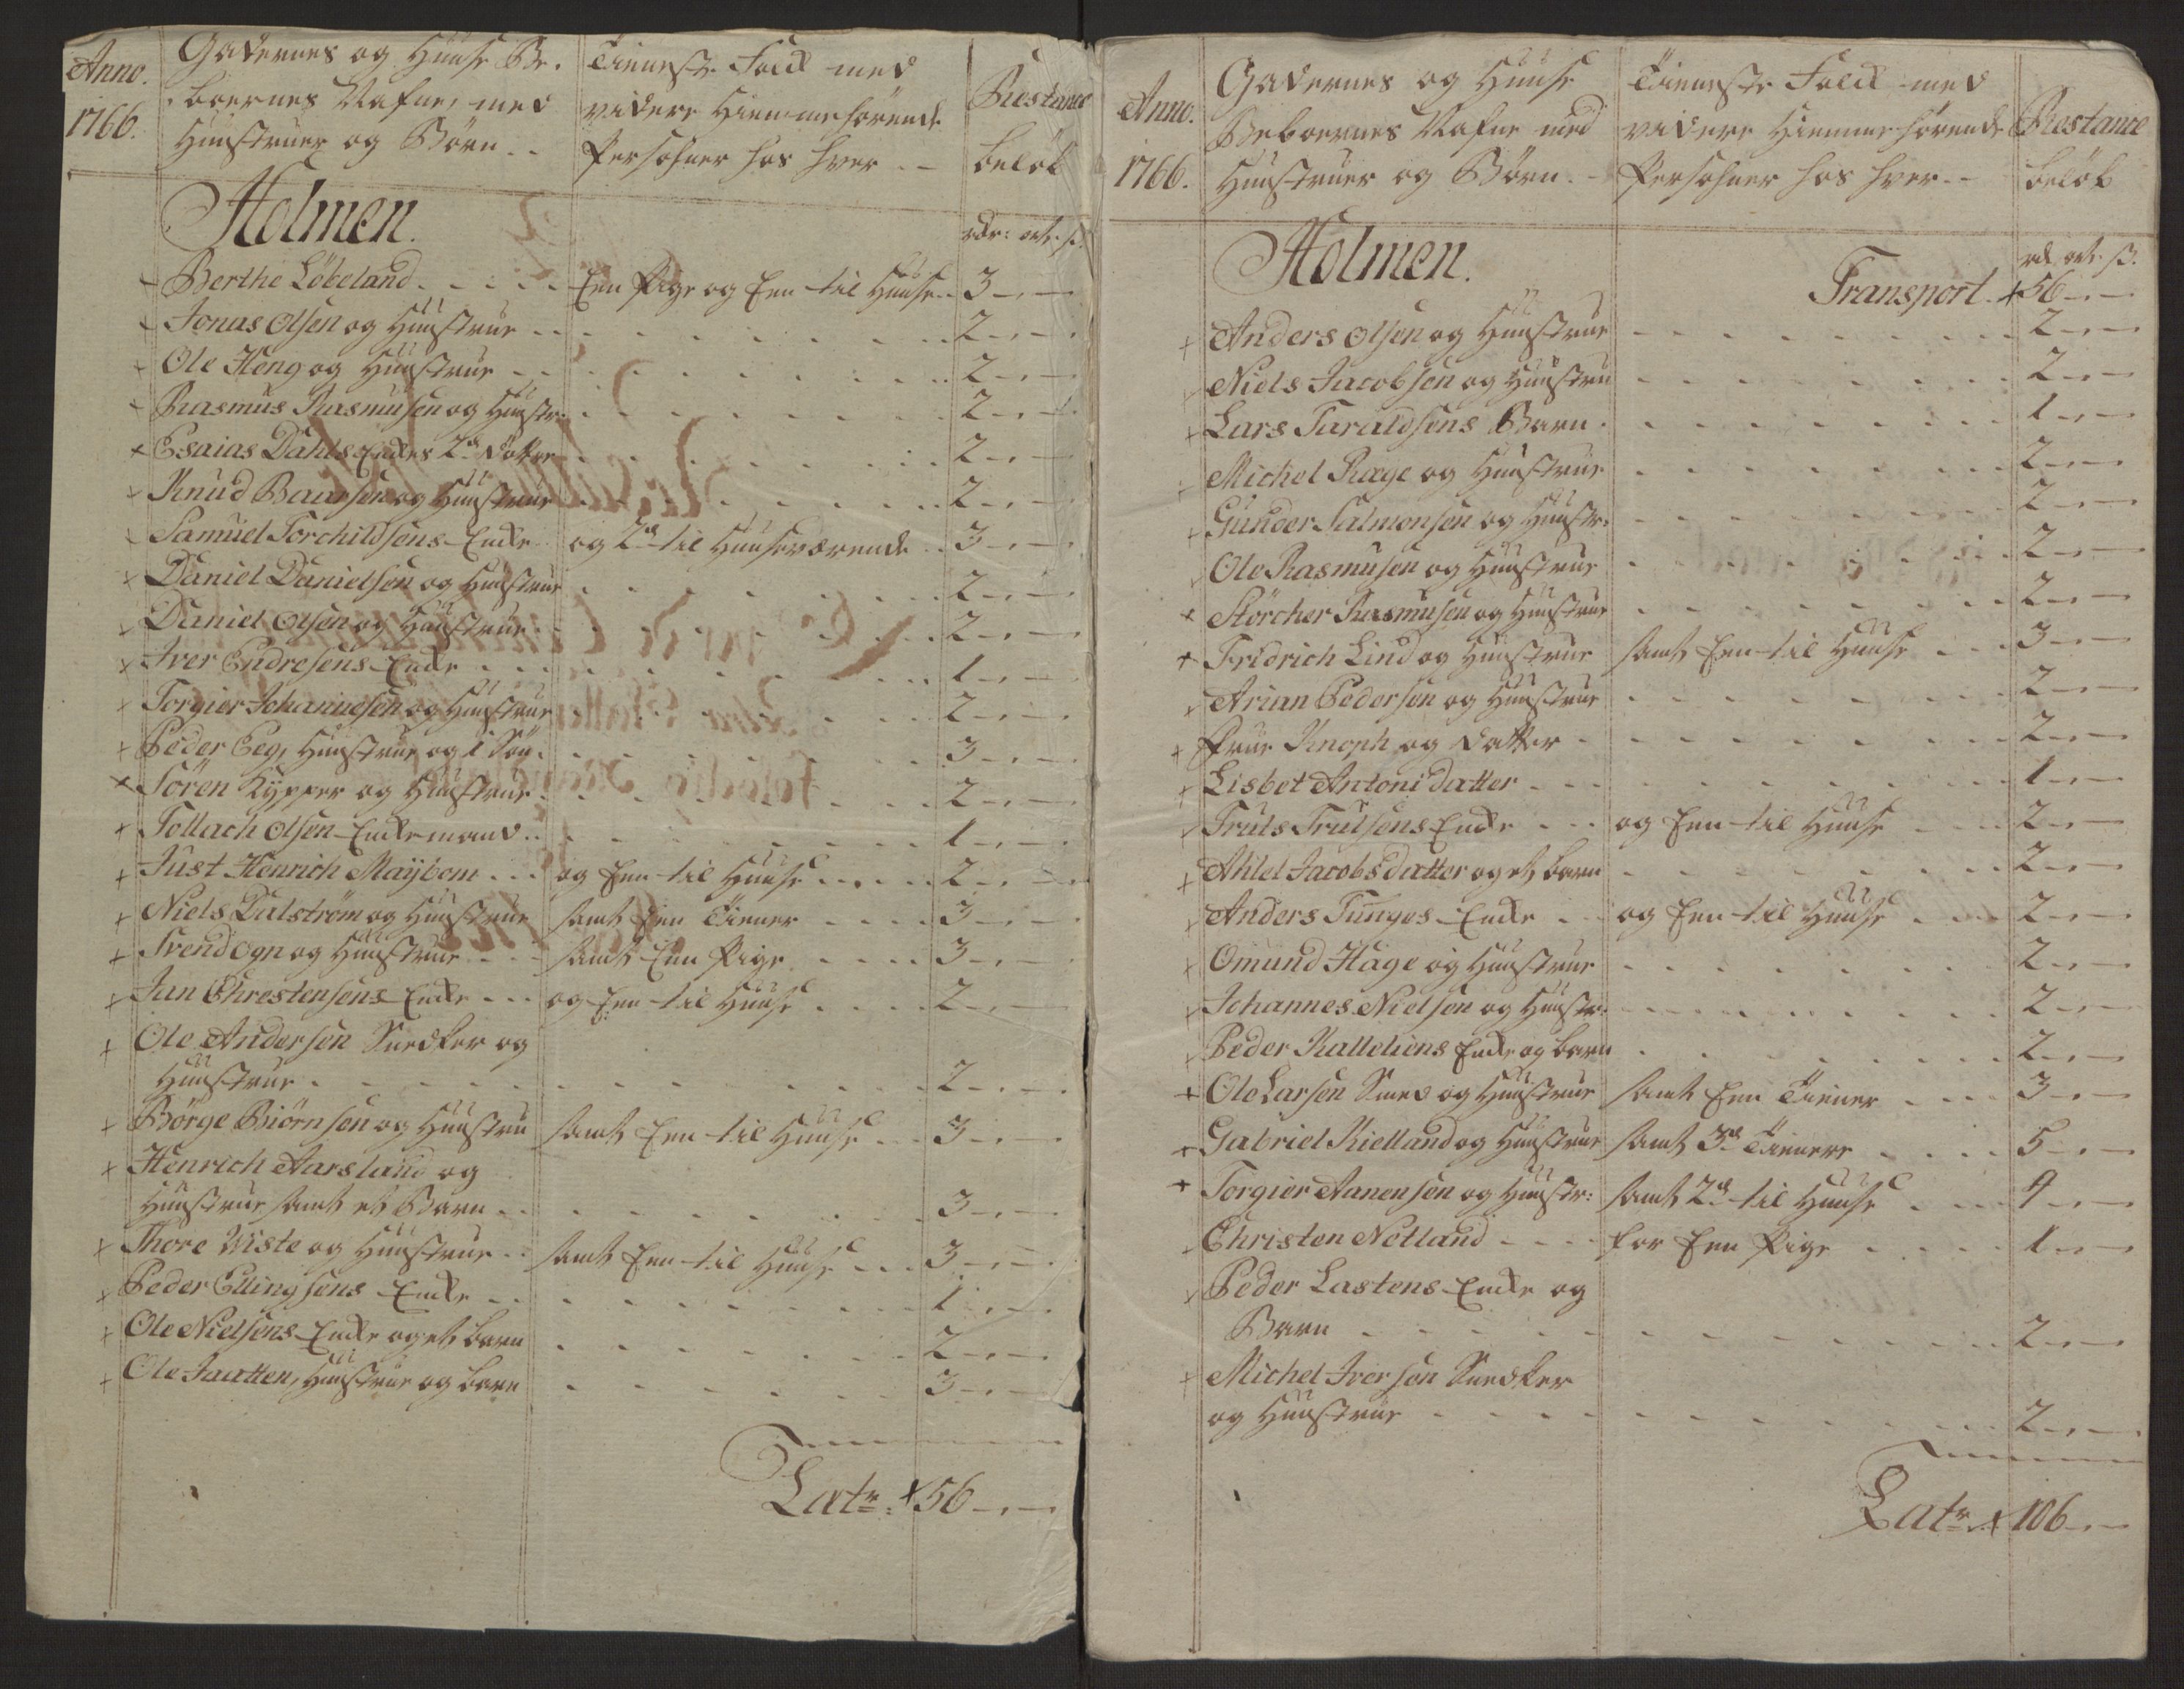 Anno.
1766.
Gadernes og Huuse Be-
boernes Nafne, med
Hustruer og Börn
Tieneste Folck med
videre Hiemmehörende
Persohner hos hver
Restance
belöb
Holmen.
rdr: ort. s.
Berthe Löbeland - - - - - Een Pige og Een til Huuse - 3 - , -
Jonas Olsen og Huustrue - - 2 - , -
Ole Heng og Huustrue - - 2 - , -
Rasmus Rasmusen og Huustr: 2 - , -
Esaias Dahls Enckes 2de Döttre 2 - , -
Knud Baarsen og Huustrue 2 - , -
Samuel Torchildsens Encke og 2de til Huuseværende 3 - , -
Daniel Danielsen og Huustrue 2 - , -
Daniel Olsen og Huustrue 2 - , -
Iver Endresens Encke 1 - , -
Torgier Johannesen og Huustrue 2 - , -
Peder Eeg, Huustrue og 1 Sön 3 - , -
Sören Kypper og Huustrue 2 - , -
Tollach Olsen Enckemand 1 - , -
Just Henrich Maÿbom og Een til Huuse 2 - , -
Niels Dulström og Huustrue samt Een Tiener 3 - , -
Svend Ogn og Huustrue samt Een Pige 3 - , -
Jan Chrestensens Encke og Een til Huuse 2 - , -
Ole Andersen Snedker og
Huustrue 2 - , -
Börge Biörnsen og Huustru samt Een til Huuse 3 - , -
Henrich Aarsland og
Huustrue samt et Barn 3 - , -
Thore Viste og Huustrue samt Een til Huuse 3 - , -
Peder Ellingsens Encke 1 - , -
Ole Nielsens Encke og et barn 2 - , -
Ole Jaatten, Huustrue og barn 3 - , -
Latr: 56 - , -
Anno.
1766.
Gadernes og Huuse
Beboernes Nafne med
Hustruer og Börn
Tieneste Folck med
videre Hiemmehörende
Persohner hos hver
Restance
belöb
Holmen.
rd. ort. ß.
Transport 56 - , -
Anders Olsen og Huustrue 2 - , -
Niels Jacobsen og Huustru 2 - , -
Lars Taraldsens Barn 1 - , -
Michel Rage og Huustrue 2 - , -
Gunder Salmonsen og Huustr: 2 - , -
Ole Rasmusen og Huustrue 2 - , -
Störcher Rasmusen og Huustrue 2 - , -
Fridrich Lind og Huustrue samt Een til Huuse 3 - , -
Arian Pedersen og Huustrue 2 - , -
Frue Knoph og Datter 2 - , -
Lisbet Antoni datter 1 - , -
Truls Trulsens Encke og Een til Huuse 2 - , -
Ahlel Jacobsdatter og et barn 2 - , -
Anders Tunges Encke og Een til Huuse 2 - , -
Omund Hage og Huustrue 2 - , -
Johannes Nielsen og Huustr: 2 - , -
Peder Kalleliens Encke og barn 2 - , -
Ole Larsen Smed og Huustrue samt Een Tiener 3 - , -
Gabriel Kielland og Huustrue samt 3de Tienere 5 - , -
Torgier Aanensen og Huustr: samt 2de til Huuse 4 - , -
Christen Netland for Een Pige 1 - , -
Peder Lastens Encke og
Barn 2 - , -
Michel Iversen Snedker
og Huustrue 2 - , -
Latr: 106 - , -